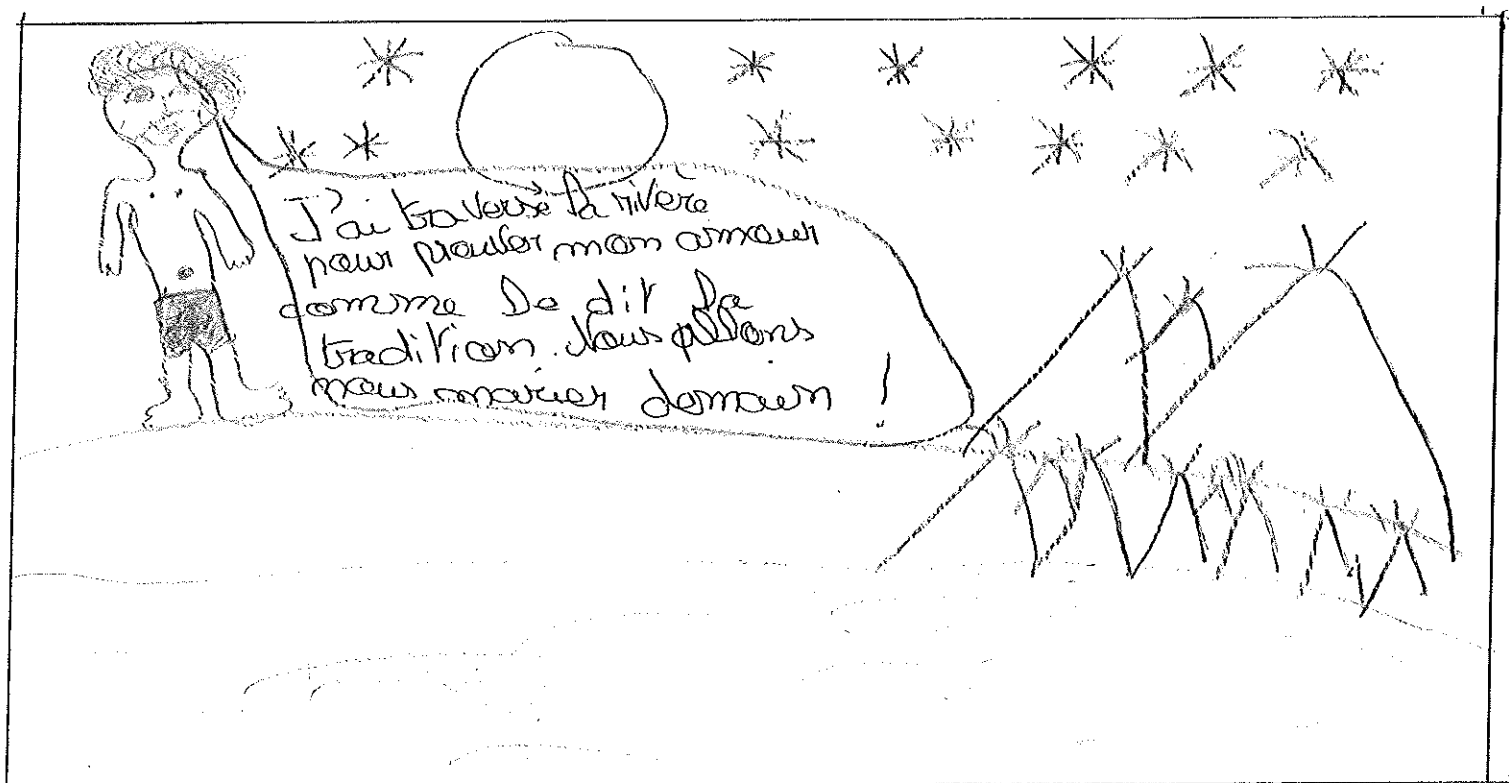 J'ai traversé la rivère
pour prouver mon amour
comme le dit la
tradition. Nous allons
nous marier demain !